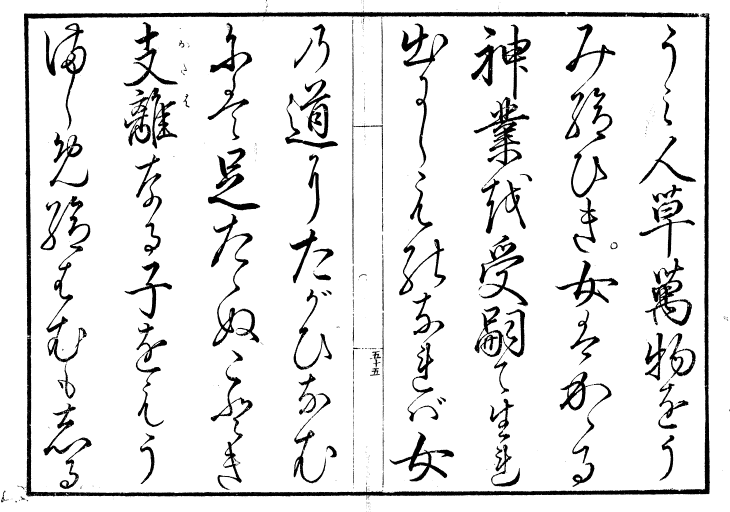 うミ人草萬物をう
み給ひき。女はかゝる
神業を受嗣て生れ
出にしものなれバ女
五十五
の道にたがひなむ
には足たゝぬごとき
かたは
支離なる子をもう
まし免給はむも志る